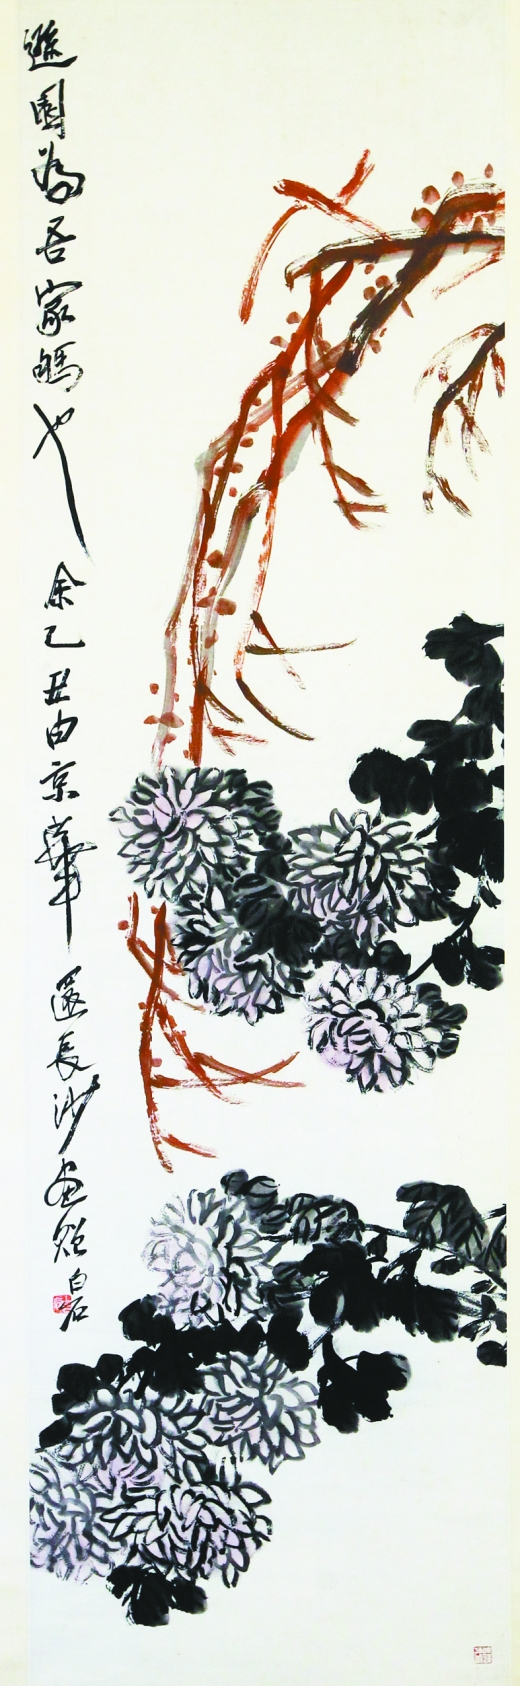 遜園為吾家也余乙丑由京華還長沙画贻白石